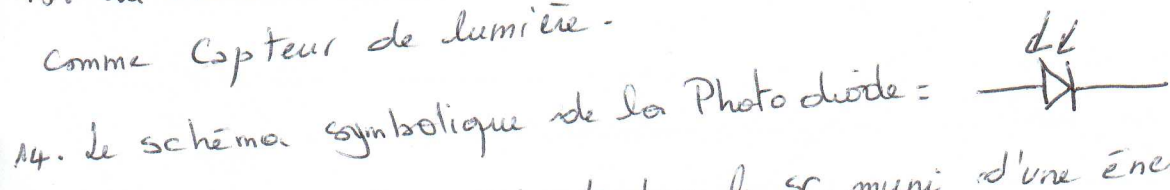 comme Capteur de lumière.
14. Le schéma symbolique de la Photodiode =
muni d'une éne